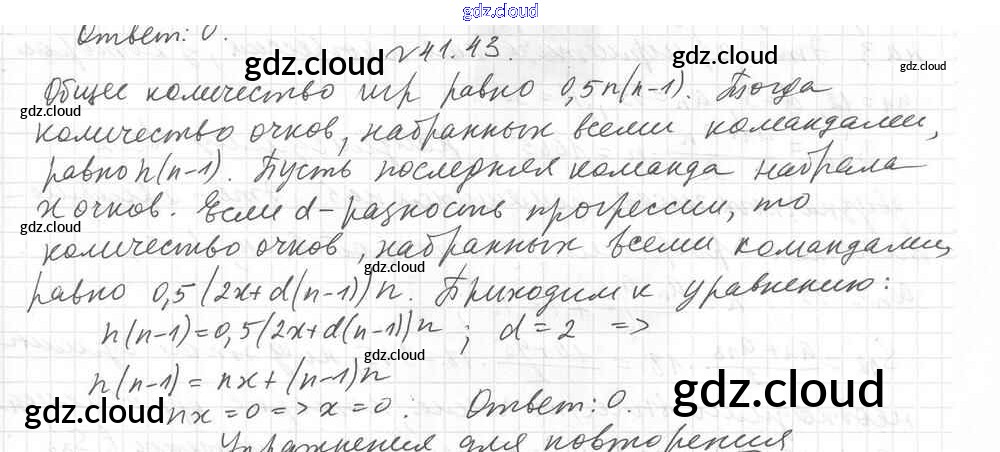 gdz.cloud
Ответ: 0.
№41.43.
gdz.cloud
gdz.cloud
Общее количество игр равно 0,5n(n-1). Тогда
gdz.cloud
gdz.cloud
количество очков, набранных всеми командами,
равно n(n-1). Пусть последняя команда набрала
x очков. Если d-разность прогрессии, то
gdz.cloud
gdz.cloud
количество очков, набранных всеми командами,
gdz.cloud
равно 0,5(2x+d(n-1))n. Приходим к уравнению:
n(n-1)=0,5(2x+d(n-1))n; d=2 =>
gdz.cloud
n(n-1)=nx+(n-1)n
gdz.cloud
gdz.cloud
nx=0=>x=0. Ответ: 0.
Упражнения для повторения